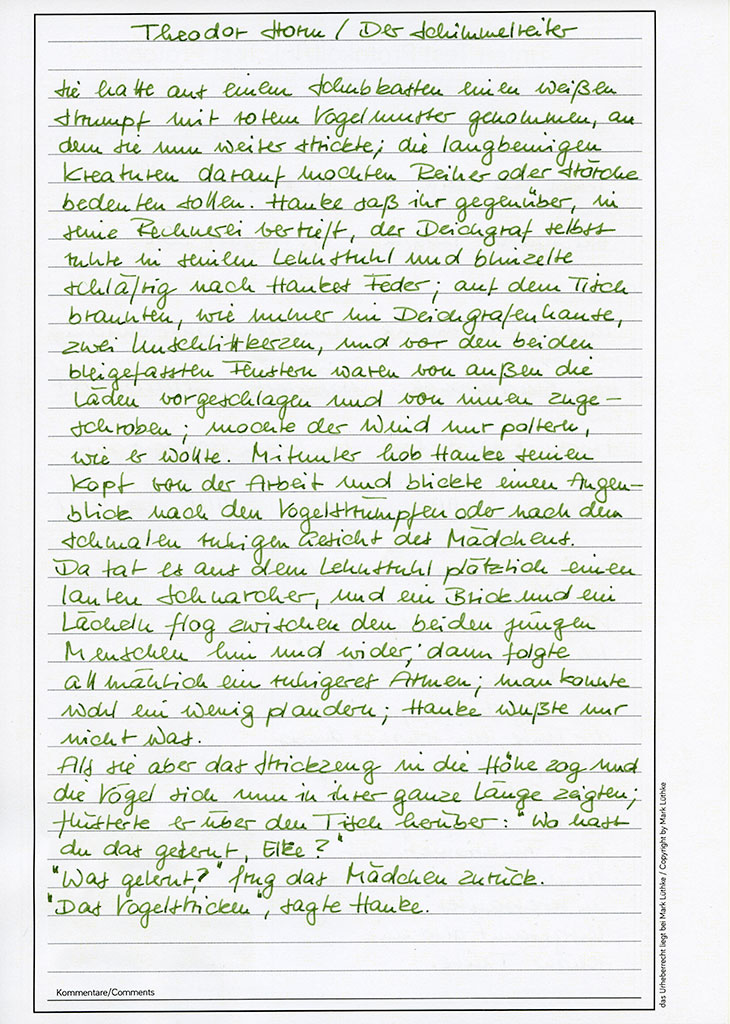 Theodor Storm / Der Schimmelreiter
Sie hatte aus einem Schubkasten einen weißen
Strumpf mit rotem Vogelmuster genommen, an
dem sie nun weiter strickte; die langbeinigen
Kreaturen darauf mochten Reiher oder Störche
bedeuten sollen. Hauke saß ihr gegenüber, in
seine Rechnerei vertieft, der Deichgraf selbst
ruhte in seinem Lehnstuhl und blinzelte
schläfrig nach Haukes Feder; auf dem Tisch
brannten, wie immer im Deichgrafenhause,
zwei Unschlittkerzen, und vor den beiden
bleigefassten Fenstern waren von außen die
Läden vorgeschlagen und von innen zuge-
schroben; mochte der Wind nur poltern,
wie er wollte. Mitunter hob Hauke seinen
Kopf von der Arbeit und blickte einen Augen-
blick nach den Vogelstrümpfen oder nach dem
schmalen ruhigen Gesicht des Mädchens.
Da tat es aus dem Lehnstuhl plötzlich einen
lauten Schnarcher, und ein Blick und ein
Lächeln flog zwischen den beiden jungen
Menschen hin und wider; dann folgte
allmählich ein ruhigeres Atmen; man konnte
wohl ein wenig plaudern; Hauke wußte nur
nicht was.
Als sie aber das Strickzeug in die Höhe zog und
die Vögel sich nun in ihrer ganze Länge zeigten;
flüsterte er über den Tisch herüber: "Wo hast
du das gelernt, Elke?"
"Was gelernt?" frug das Mädchen zurück.
"Das Vogelstricken", sagte Hauke.
Kommentare/Comments
das Urheberrecht liegt bei Mark Lüthke / Copyright by Mark Lüthke